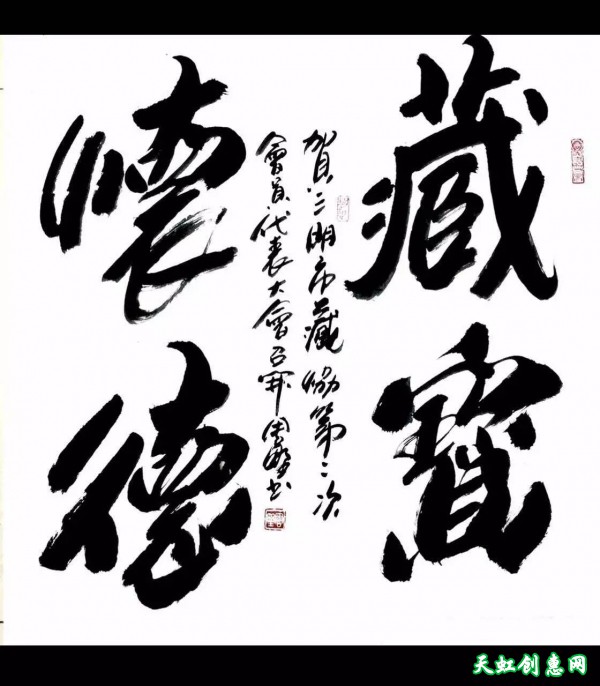 藏寶
懷德
賀三明市藏協第二次
會員代表大會召開 周野书
天虹创惠网